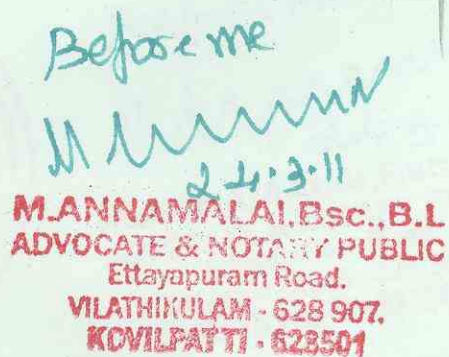 Before me
24.3.11
M.ANNAMALAI,Bsc.,B.L
ADVOCATE & NOTARY PUBLIC
Ettayapuram Road.
VILATHIKULAM - 628 907.
KOVILPATTI - 628501